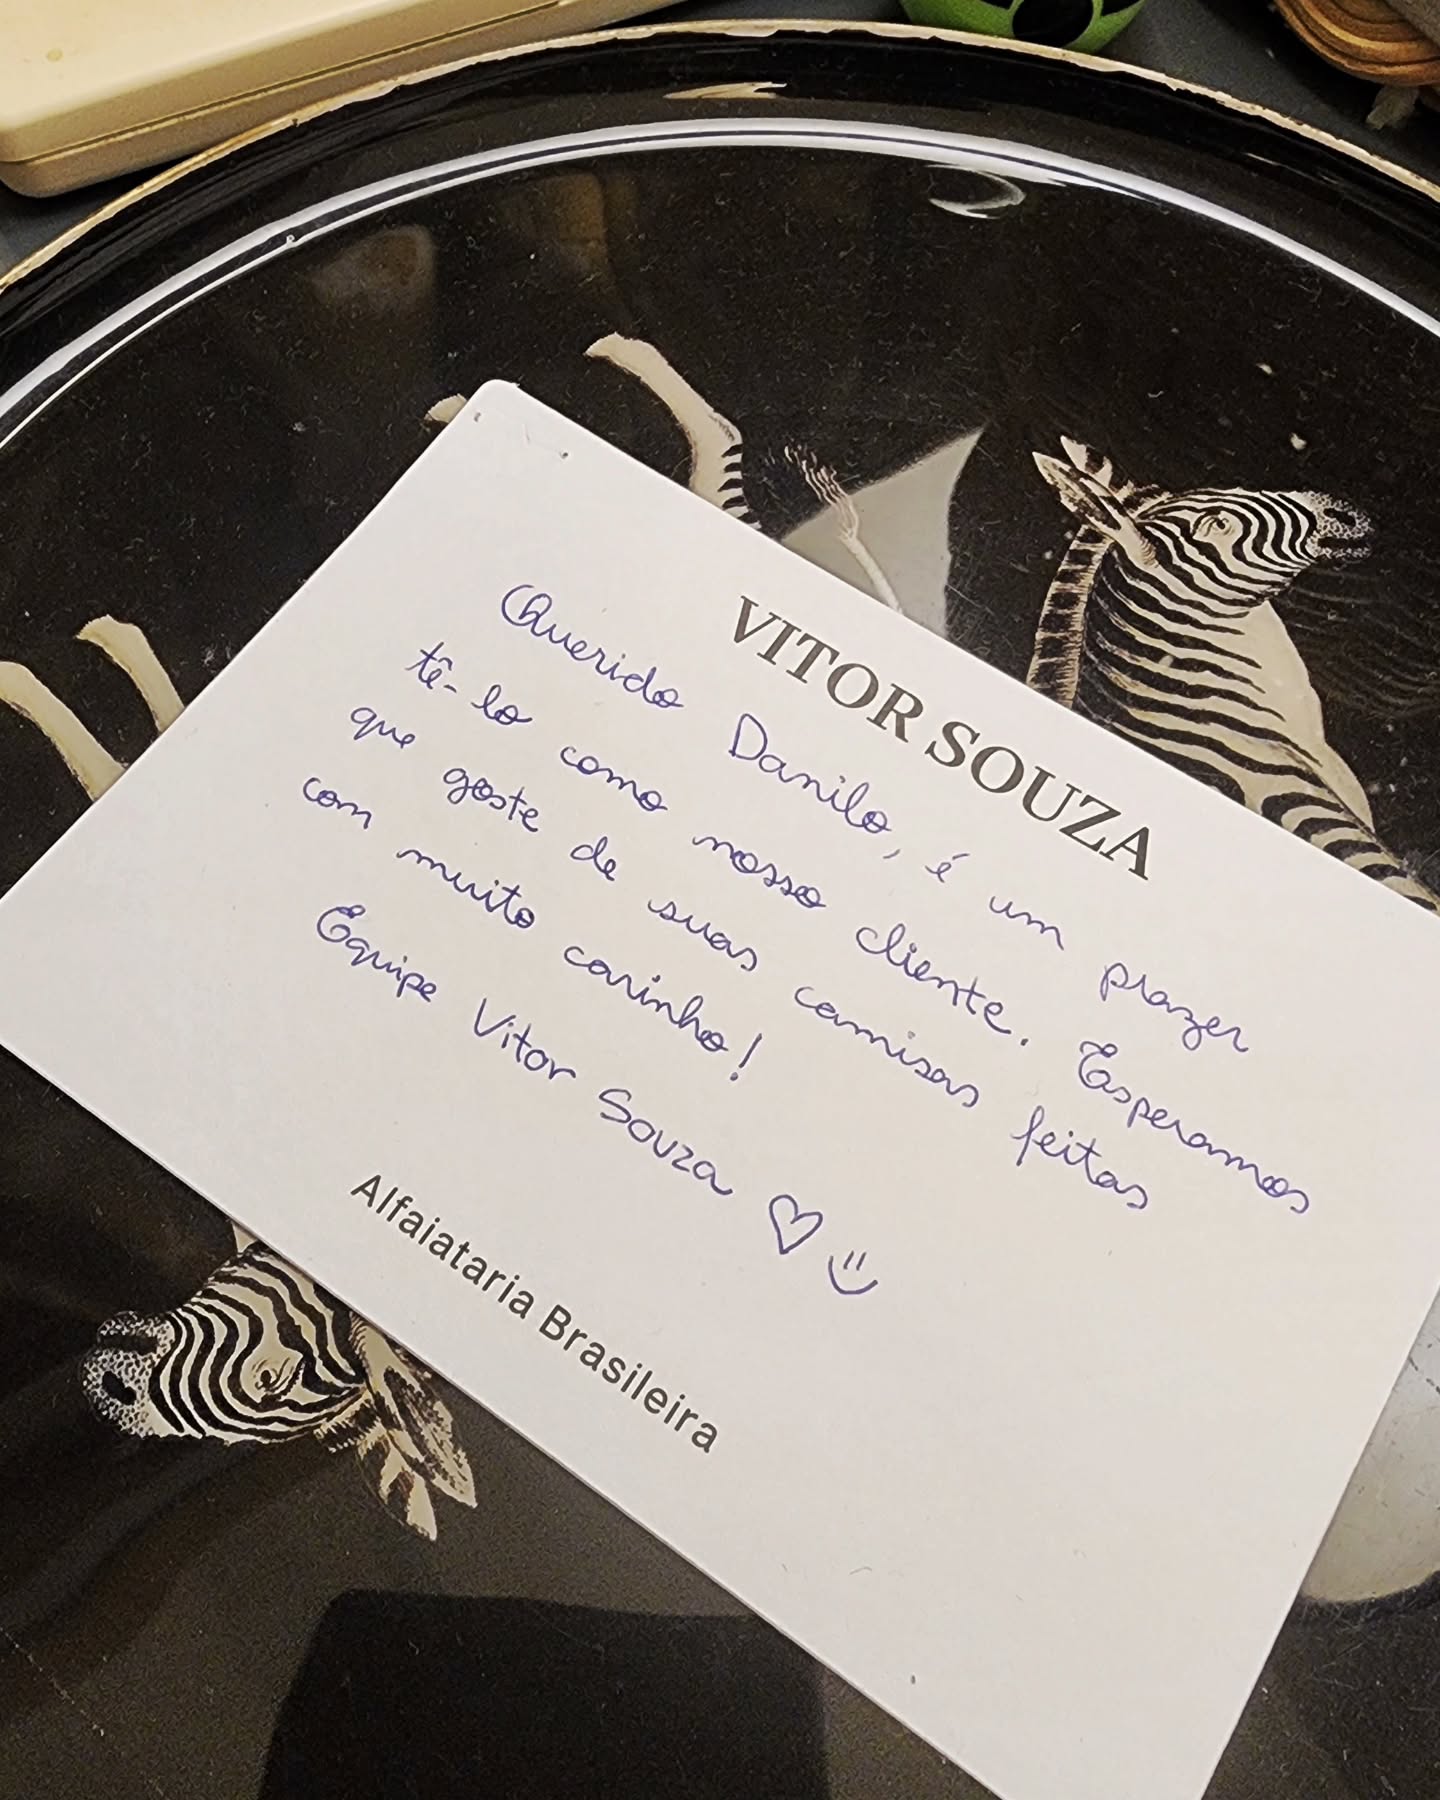 VITOR SOUZA
Querido Danilo, é um prazer
tê-lo como nosso cliente. Esperamos
que goste de suas camisas feitas
com muito carinho!
Equipe Vitor Souza ♡
Alfaiataria Brasileira